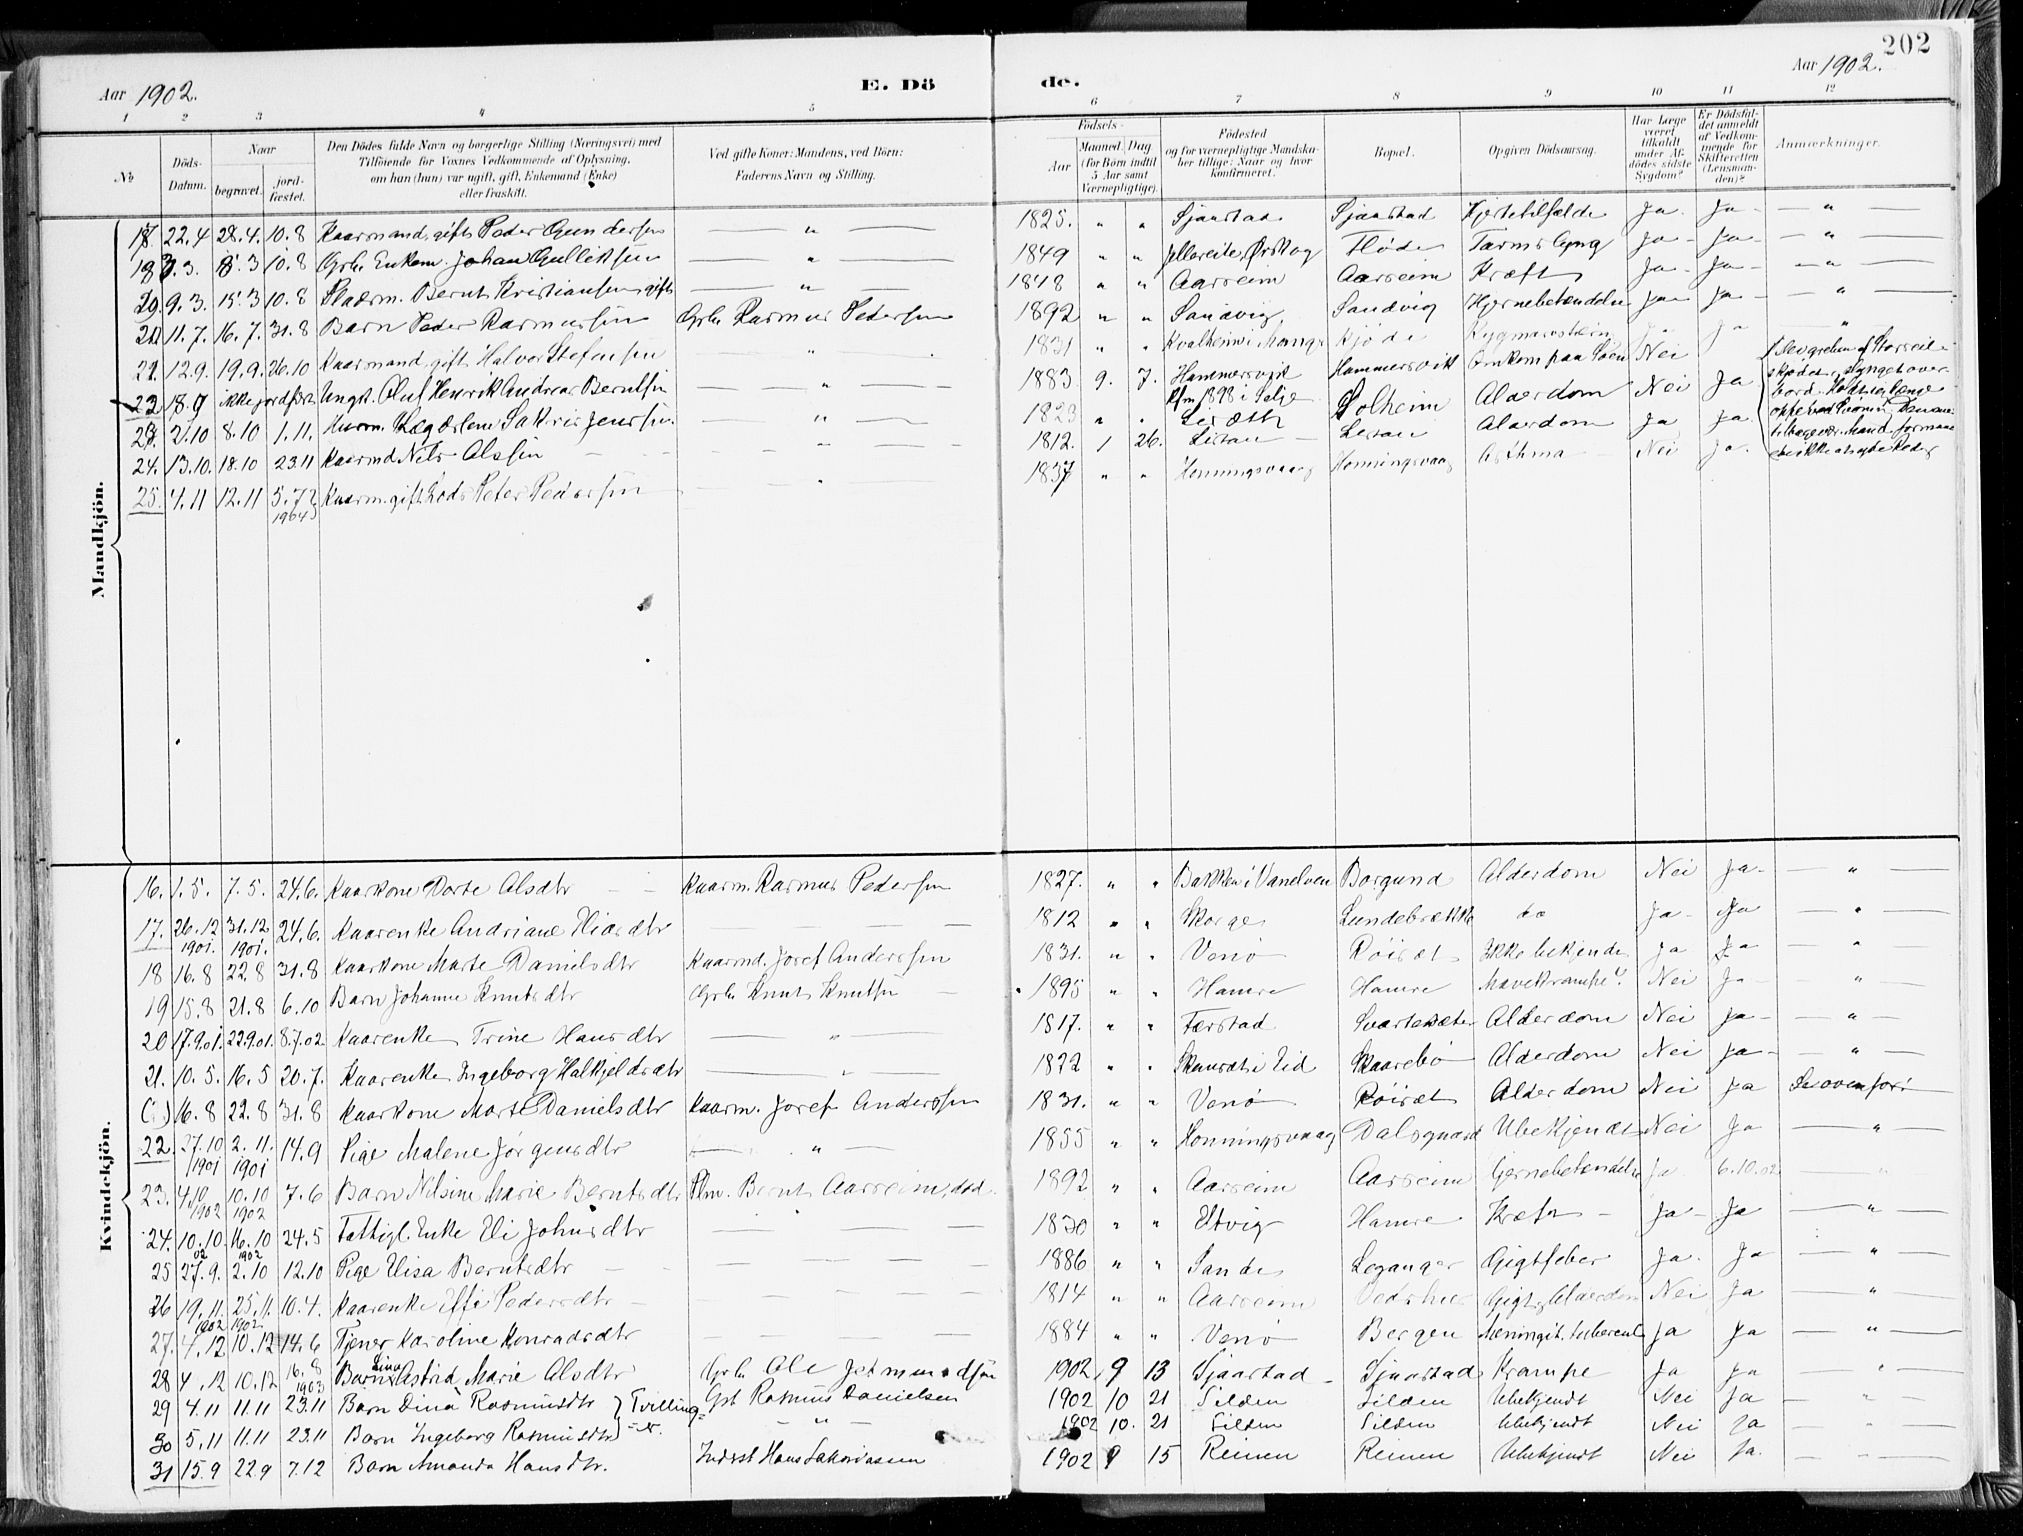 202
Aar 1902. E. Dö de. Aar 1902.
1 2 3 4 5 6 7 8 9 10 11 12
No. Döds-Datum. Naar begravet. jordfæstet. Den Dödes fulde Navn og borgerlige Stilling (Næringsvei) med Tilföiende for Voxnes Vedkommende af Oplysning, om han (hun) var ugift, gift, Enkemand (Enke) eller fraskilt. Ved gifte Koner: Mandens, ved Börn: Faderens Navn og Stilling. Födsels- Aar Maaned. Dag. (for Börn indtil 5 Aar samt Værnepligtige). Födested og for værnepligtige Mandskaber tillige: Naar og hvor konfirmeret. Bopæl. Opgiven Dödsaarsag. Har Læge været tilkaldt under Afdödes sidste Sygdom? Er Dödsfaldet anmeldt af Vedkommende for Skifteretten (Lensmanden)? Anmærkninger.
Mandkjön.
18. 22.4 28.4. 10.8 Kaarmand, gift Peder Gundersen — " — 1825. " " Sjaastad Sjaastad Hjertetilfælde Ja. Ja — " —
3.3. 8.3 10.8 Gbr. Enkem. Johan Gulliksen — " — 1849 " " Ørskog Flöde Ja — Ja — — " —
20. 9.3. 15.3 10.8 Bernt Kristiansen, gift — " — 1848 " " Aarseim Aarseim Kræft Ja — Ja — — " —
21. 11.7. 16.7. 31.8 Barn Peder Rasmussen Gbr. Rasmus Pedersen 1892 " " Sandvig Sandvig Hjernebetændelse Ja — Ja — — " —
22. 12.9. 19.9. 26.10 Kaarmand gift Halvor Stefensen " 1831 " " Kvalheim i Kjöde Rygmarvstæring Ja Ja — " —
22 18.9 ikke jordfæst Ungk. Oluf Henrik Andreas Berntsen — " — 1883 9. 7. Hammersvik Kfm 1898 i Selje Hammersvik Omkom paa Söen Nei
23 2.10 8.10 1.11. Husm. Lægdslem Sakris Jenssen — " — 1823 " Liseth Solheim Alderdom Nei Ja
24. 13.10. 18.10 23.11 Kaarmd Nils Olssen — " — 1812. 1 26. Listau Listau Alderdom Ja Ja.
25. 4.11 12.11 1904 Kaarm. gift Peter Pedersen — " — 1837 " " Honningsvaag Honningsvaag Asthma — Nei Ja.
Kvindekjön.
16. 1.5. 7.5. 24.6. Kaarkone Dorte Olsdtr — Kaarm. Rasmus Pedersen 1827. " " Bakken i Vanelven Borgund Alderdom Nei Ja — — " —
17. 26.12 1901. 31.12 1901. 24.6. Kaarenke Andriane Eliasdtr — 1812 " " Skorge Lundebrekke do Ja — Ja — " —
18 16.8 22.8 31.8 Kaarkone Marte Danielsdtr Kaarmd. Josef Anderssen 1831. " " Venö Röiset Ikke bekjendt Ja Ja — " —
19 15.8 21.8 6.10 Barn Johanne Knutsdtr Gbr. Knut Knutsen — 1895 " " Hamre Hamre Mavekrampe? Nei Ja — " —
20 17.9.01. 22.9.01. 8.7.02. Kaarenke Trine Hansdtr — " — 1817. " " Færstad Svartesæter Alderdom Nei Ja — — " —
21. 10.5. 16.5 20.7. Kaarenke Ingeborg Halkjeldsdtr — " — 1822 " " Eid Skaarebö Alderdom Nei Ja — — " —
(:) 16.8 22.8 31.8 Kaarkone Marte Danielsdtr Kaarm. Josef Anderssen 1831. " " Venö Röiset Alderdom Nei Ja Se ovenfor!
22 27.10 1901 2.11. 1901 14.9 Pige Malene Jörgensdtr — " — 1855 " " Honningsvaag Dalsgaard Ubekjendt Nei Ja — " —
23. 4.10 1902 10.10 1902 7.6 Barn Nilsine Marie Berntsdtr Plm. Bernt Aarseim, död. 1892 " " Aarseim Aarseim Hjernebetændelse Ja 6.10.02 — " —
24. 10.10. 02 16.10 1902 24.5 Fattigl. Enke Eli Johnsdtr — 1830 " " Elvig Hamre Kræft — Ja — Ja — " —
25 27.9. 2.10 12.10 Pige Elisa Berntsdtr — 1886 " " Sande Leganger Gigtfeber Ja. Ja — " —
26 19.11. 1902 25.11. 1902. 10.4. Kaarenke Effi Pedersdtr — 1814 " " Aarseim Gigt, Alderdom Nei Ja — " —
27. 4.12 10.12 14.6 Tjener Karoline Konradsdtr — 1884 " " Venö Bergen Meningit. tuberculo Ja Ja — " —
28 4.12 10.12 16.8 1903 Barn Dina Astrid Marie Olsdtr Gbr. Ole Jetmundsen 1902 9 13 Sjaastad — Sjaastad Krampe Ja Ja "
29 4.11 11.11 23.11 Barn Dina Rasmusdtr } Tvilling- Gbr Rasmus Danielsen 1902 10 21 Silden Silden Ubekjendt Nei Ja — " —
30 5.11 11.11 23.11 Barn Ingeborg Rasmusdtr } er. — " — 1902 10. 21 Silden Silden Ubekjendt Nei Ja "
31 15.9 22.9 7.12 Barn Amanda Hansdtr. Inderst Hans Sakariassen 1902 9 15 Reimen Reimen Ubekjendt Nei Ja. — " —